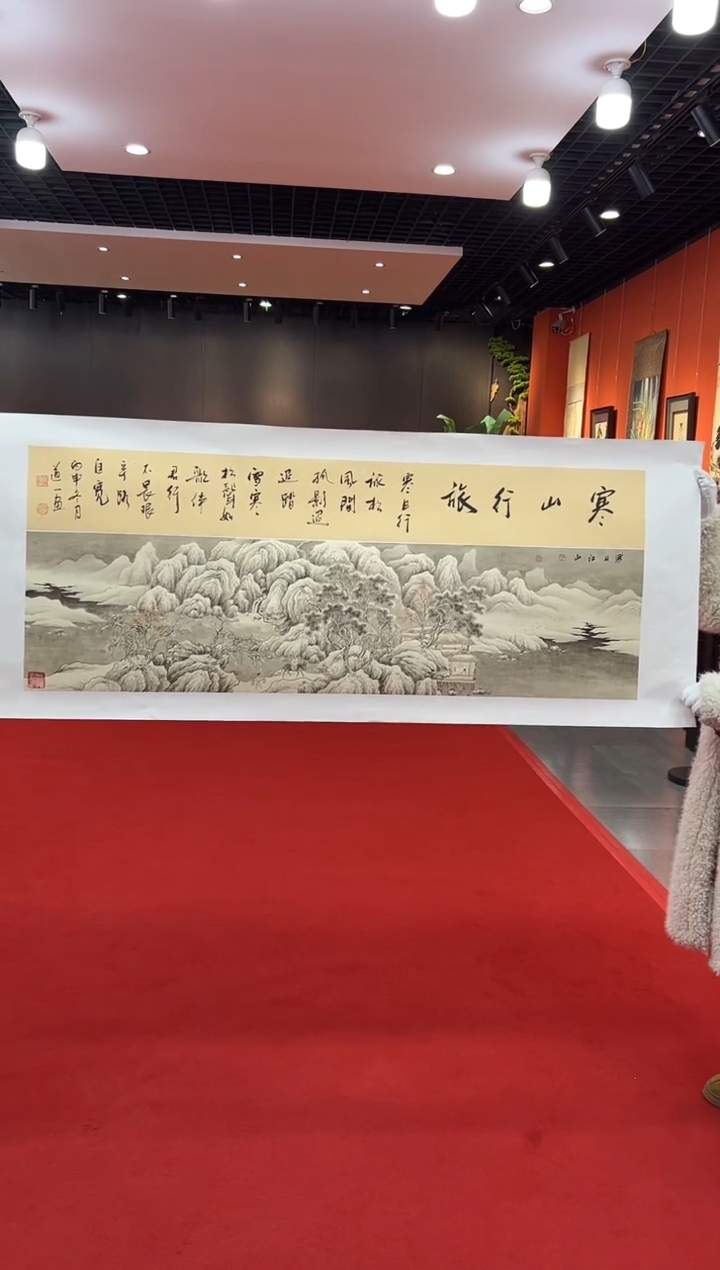 寒山行旅
寒日行
旅松
風間
孤影過
逕踏
雪寒
松聲如
歌伴
君行
不畏艱
辛路
自寬
丙申
道一畫
寒江山